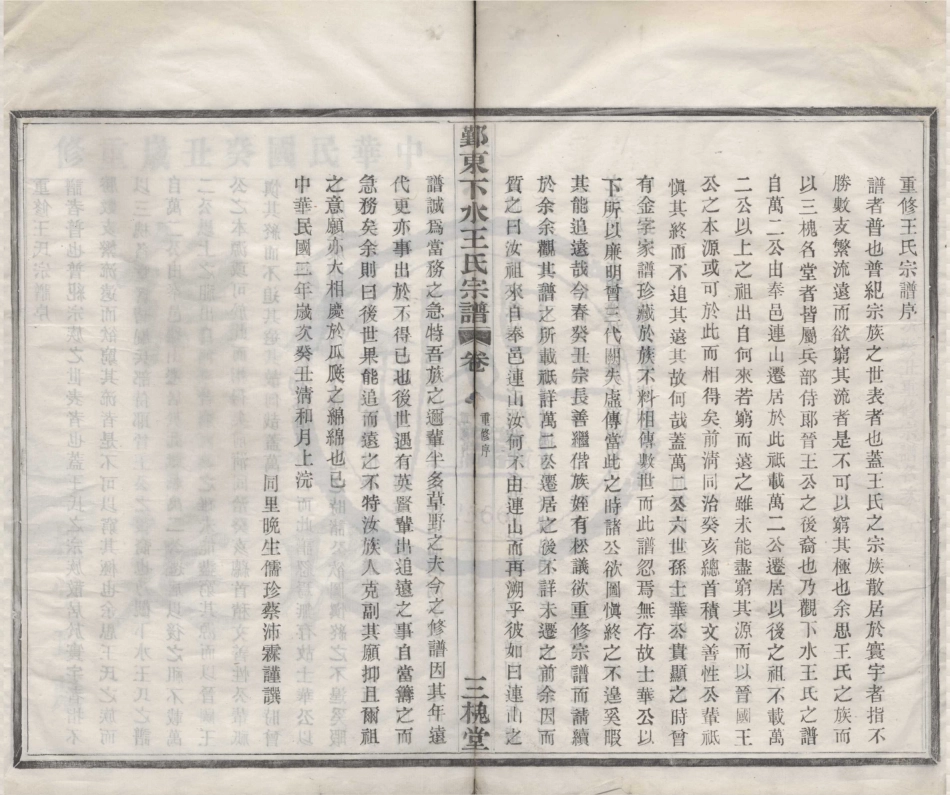 重修王氏宗譜序
譜者普也普紀宗族之世表者也蓋王氏之宗族散居於寰宇者指不
勝數支繁流遠而欲窮其流者是不可以窮其極也余思王氏之族而
以三槐名堂者皆屬兵部侍郎晉王公之後裔也乃觀下水王氏之譜
自萬二公由奉邑連山遷居於此祗載萬二公遷居以後之祖不載萬
二公以上之祖出自何來若窮而遠之雖未能盡窮其源而以晉國王
公之本源或可於此而相得矣前淸同治癸亥總首積文善性公輩祗
愼其終而不追其遠其故何哉蓋萬二公六世孫士華公貴顯之時曾
有金字家譜珍藏於族不料相傳數世而此譜忽焉無存故士華公以
下所以廉明曾三代關失虛傳當此之時諸公欲圖愼終之不遑奚暇
其能追遠哉今春癸丑宗長善繼偕族姪有松議欲重修宗譜而請續
於余余觀其譜之所載祗詳萬二公遷居之後不詳未遷之前余因而
質之曰汝祖來自奉邑連山汝何不由連山而再溯乎彼如曰連山之
鄞東下水王氏宗譜
卷
重修序
三槐堂
譜誠爲當務之急特吾族之邇輩半多草野之夫今之修譜因其年遠
代更亦事出於不得已也後世遇有英賢輩出追遠之事自當籌之而
急務矣余則曰後世果能追而遠之不特汝族人克副其願抑且爾祖
之意願亦大相慶於瓜瓞之綿綿也已
中華民國三年歲次癸丑淸和月上浣
同里晚生儒珍蔡沛霖謹譔